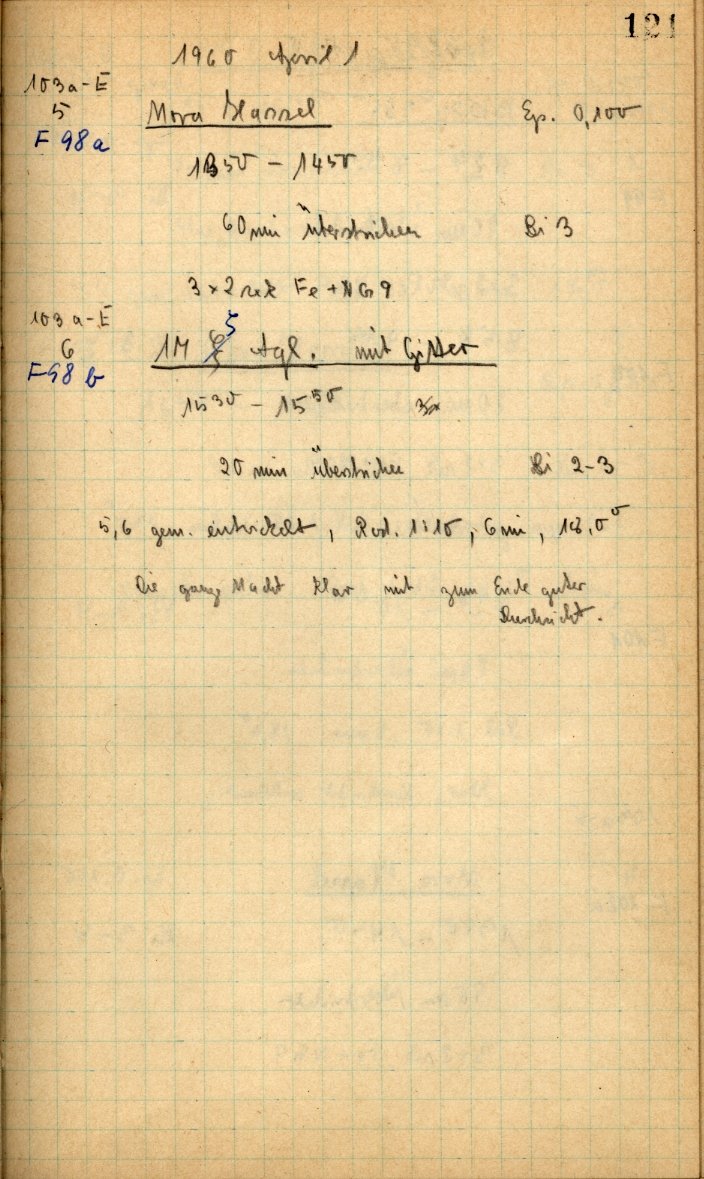 121
1960 April 1
103a-E
5
F 98a
Nova Hassel Ep. 0,100
13 50 – 14 50
60 min überstrichen Bi 3
3 × 2 sek Fe +
103a-E
6
F98 b
ζ
14 Aql. mit Gitter
15 30 – 15 50
20 min überstrichen Bi 2–3
5,6 gem. entwickelt, Rod. 1:10, 6 min, 18,0°
Die ganze Nacht klar mit zum Ende guter
Durchsicht.